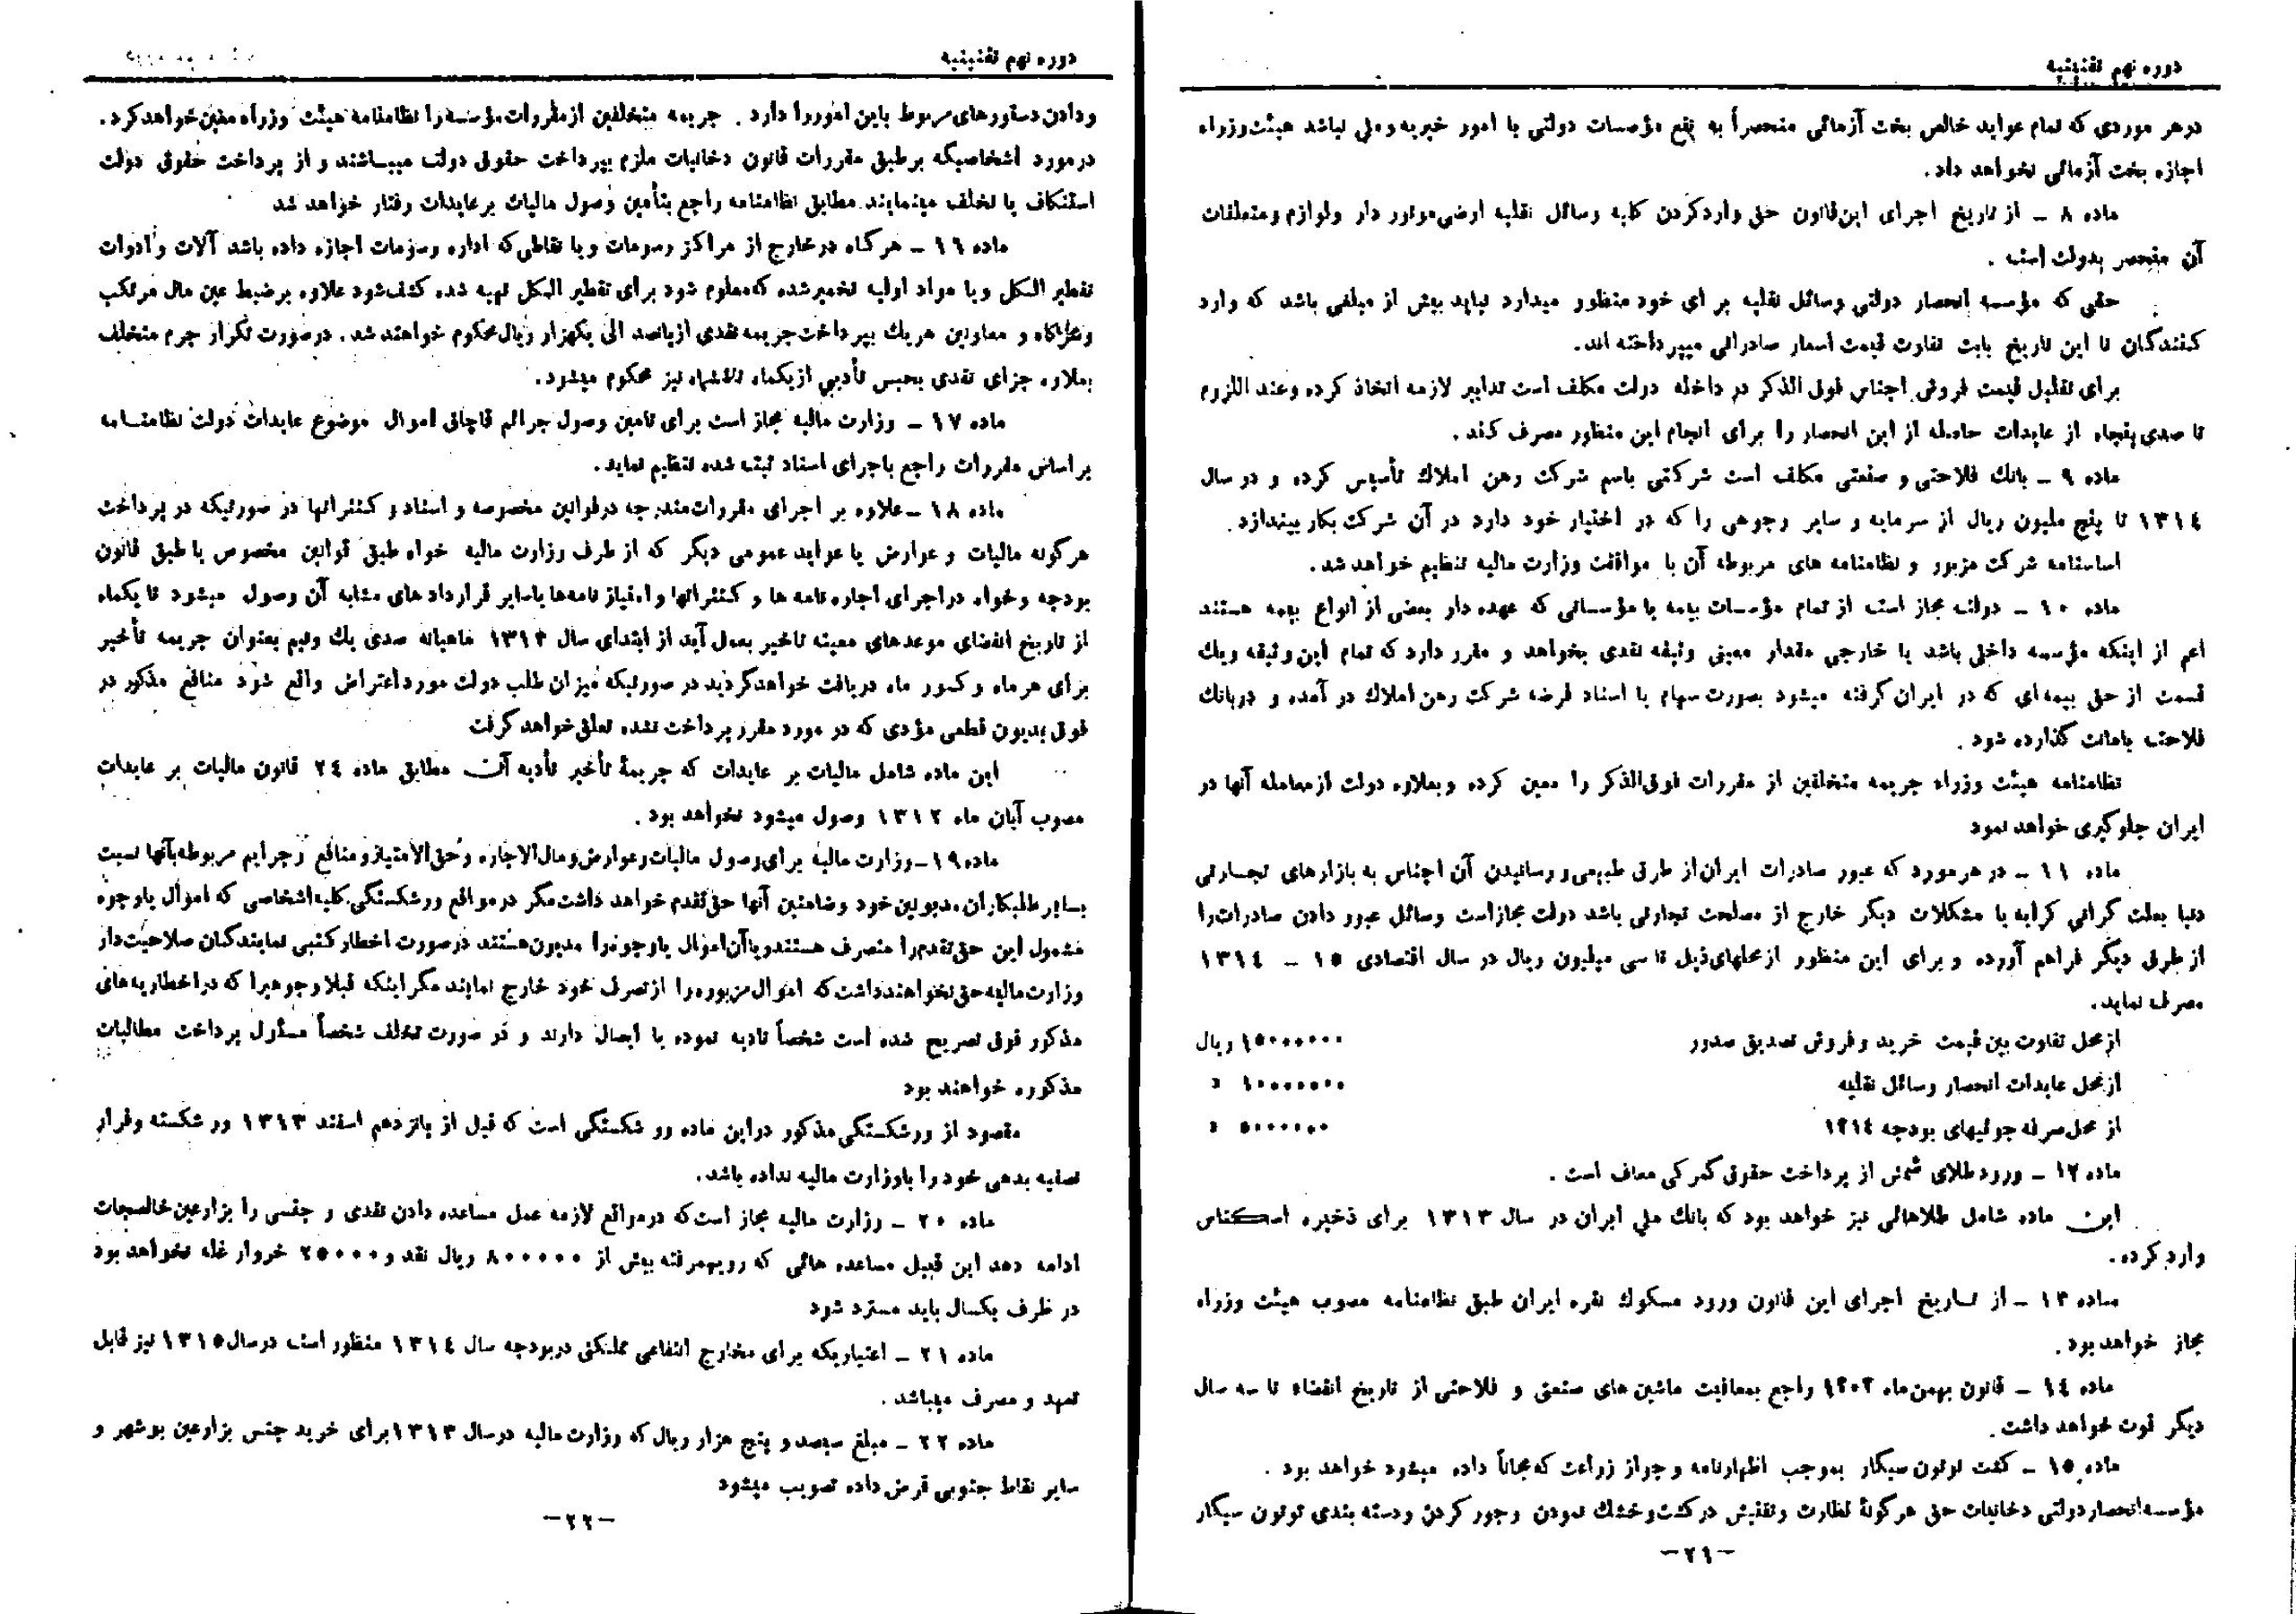 دوره نهم تقنینیه
درهر موردی که تمام عواید خالص بخت آزمائی منحصراً به نفع مؤسسات دولتی یا امور خیریه وملی نباشد هیئت وزراء
اجازه بخت آزمائی نخواهد داد.
ماده ۸ ــ از تاریخ اجرای این‌قانون حق واردکردن کلیه وسائل نقلیه ارضی‌موتور دار ولوازم ومتعلقات
آن منحصر بدولت است .
حقی که مؤسسه انحصار دولتی وسائل نقلیه بر ای خود منظور میدارد نباید بیش از مبلغی باشد که وارد
کنندگان تا این تاریخ بابت تفاوت قیمت اسعار صادراتی میپرداخته اند.
برای تقلیل قیمت فروش اجناس فوق الذکر در داخله دولت مکلف است تدابیر لازمه اتخاذ کرده وعند اللزوم
تا صدی پنجاه از عایدات حاصله از این انحصار را برای انجام این منظور مصرف کند .
ماده ۹ ــ بانك فلاحتی و صنعتی مکلف است شرکتی باسم شرکت رهن املاك تأسیس کرده و در سال
۱۳۱٤ تا پنج ملیون ریال از سرمایه و سایر وجوهی را که در اختیار خود دارد در آن شرکت بکار بیندازد .
اساسنامه شرکت مزبور و نظامنامه های مربوطه آن با موافقت وزارت مالیه تنظیم خواهد شد .
ماده ۱۰ ــ دولت مجاز است از تمام مؤسسات بیمه یا مؤسساتی که عهده دار بعضی از انواع بیمه هستند
اعم از اینکه مؤسسه داخلی باشد یا خارجی مقدار معینی وثیقه نقدی بخواهد و مقرر دارد که تمام این وثیقه ویك
قسمت از حق بیمه‌ای که در ایران گرفته میشود بصورت سهام یا اسناد قرضه شرکت رهن املاك در آمده و دربانك
فلاحت بامانت گذارده شود .
نظامنامه هیئت وزراء جریمه متخلفین از مقررات فوق‌الذکر را معین کرده وبعلاوه دولت ازمعامله آنها در
ایران جلوگیری خواهد نمود
ماده ۱۱ ــ در هرمورد که عبور صادرات ایران‌از طرق طبیعی‌و رسانیدن آن اجناس به بازارهای تجارتی
دنیا بعلت گرانی کرایه یا مشکلات دیگر خارج از مصلحت تجارتی باشد دولت مجازاست وسائل عبور دادن صادرات‌را
از طرق دیگر فراهم آورده و برای این منظور ازمحلهای‌ذیل تا سی میلیون ریال در سال اقتصادی ۱۵ ــ ۱۳۱٤
مصرف نماید.
ازمحل تفاوت بین قیمت خرید وفروش تصدیق صدور ۱۵۰۰۰۰۰۰ ریال
ازمحل عایدات انحصار وسائل نقلیه ۱۰۰۰۰۰۰۰ »
از محل صرفه جوئیهای بودجه ۱۳۱٤ ۵۰۰۰۰۰۰ »
ماده ۱۲ ــ ورود طلای شمش از پرداخت حقوق گمرکی معاف است .
این ماده شامل طلاهائی نیز خواهد بود که بانك ملی ایران در سال ۱۳۱۳ برای ذخیره اسکناس
وارد کرده.
ماده ۱۳ ــ از تاریخ اجرای این قانون ورود مسکوك نقره ایران طبق نظامنامه مصوب هیئت وزراء
مجاز خواهد بود .
ماده ۱٤ ــ قانون بهمن‌ماه ۱۳۰۳ راجع بمعافیت ماشین های صنعتی و فلاحتی از تاریخ انقضاء تا سه سال
دیگر قوت خواهد داشت.
ماده ۱۵ ــ کشت توتون سیگار بموجب اظهارنامه وجواز زراعت که‌مجاناً داده میشود خواهد بود .
مؤسسه انحصاردولتی دخانیات حق هرگونهٔ نظارت وتفتیش درکشت‌وخشك نمودن وجور کردن ودسته بندی توتون سیگار
ــ۲۱ــ
دوره نهم تقنینیه
ودادن دستورهای‌مربوط باین اموررا دارد . جریمه متخلفین ازمقررات‌مؤسسه‌را نظامنامه‌هیئت وزراء‌معین‌خواهدکرد.
درمورد اشخاصیکه برطبق مقررات قانون دخانیات ملزم بپرداخت حقوق دولت میباشند و از پرداخت حقوق دولت
استنکاف یا تخلف مینمایند مطابق نظامنامه راجع بتأمین وصول مالیات برعایدات رفتار خواهد شد
ماده ۱٦ ــ هرگاه درخارج از مراکز رسومات ویا نقاطی‌که اداره رسومات اجازه داده باشد آلات وادوات
تقطیر الکل ویا مواد اولیه تخمیرشده که‌معلوم شود برای تقطیر الکل تهیه شده کشف‌شود علاوه برضبط عین مال مرتکب
وشرکاء و معاونین هریك بپرداخت‌جریمه‌نقدی ازپانصد الی یکهزار ریال‌محکوم خواهند شد. درصورت تکرار جرم متخلف
بعلاوه جزای نقدی بحبس تأدیبی ازیکماه تاششماه نیز محکوم میشود.
ماده ۱۷ ــ وزارت مالیه مجاز است برای تامین وصول جرائم قاچاق اموال موضوع عایدات دولت نظامنامه
براساس مقررات راجع باجرای اسناد ثبت شده تنظیم نماید.
ماده ۱۸ ــ علاوه بر اجرای مقررات‌مندرجه درقوانین مخصوصه و اسناد و کنتراتها در صورتیکه در پرداخت
هرگونه مالیات و عوارض یا عواید عمومی دیگر که از طرف وزارت مالیه خواه طبق قوانین مخصوص یا طبق قانون
بودجه وخواه دراجرای اجاره‌نامه ها و کنتراتها وامتیاز نامه‌ها یاسایر قراردادهای مشابه آن وصول میشود تا یکماه
از تاریخ انقضای موعدهای معینه تاخیر بعمل آید از ابتدای سال ۱۳۱۴ ماهیانه صدی یك ونیم بعنوان جریمه تأخیر
برای هر ماه و کسور ماه دریافت خواهدگردید در صورتیکه میزان طلب دولت مورد اعتراض واقع شود منافع مذکور در
فوق بدیون قطعی مؤدی که در مورد مقرر پرداخت نشده تعلق خواهد گرفت
این ماده شامل مالیات بر عایدات که جریمهٔ تأخیر تأدیه آن مطابق ماده ۲٤ قانون مالیات بر عایدات
مصوب آبان ماه ۱۳۱۲ وصول میشود نخواهد بود .
ماده۱۹ــ وزارت مالیه برای‌وصول مالیات‌وعوارض‌ومال‌الاجاره وحق‌الامتیازومنافع وجرایم مربوطه‌بآنها نسبت
بسایر طلبکاران‌مدیونین‌خود وضامنین آنها حق‌تقدم خواهد داشت‌مگر درمواقع ورشکستگی‌کلیه‌اشخاصی که اموال یاوجوه
مشمول این حق‌تقدم‌را متصرف هستندویاآن‌اموال یاوجوه‌را مدیون‌هستند درصورت اخطارکتبی نمایندگان صلاحیت‌دار
وزارت‌مالیه‌حق‌نخواهندداشت‌که اموال‌مزبوره‌را ازتصرف خود خارج نمایند مگر اینکه قبلا وجوهیرا که دراخطاریه‌های
مذکور فوق تصریح شده است شخصاً تادیه نموده یا ایصال دارند و در صورت تخلف شخصاً مسئول پرداخت مطالبات
مذکوره خواهند بود
مقصود از ورشکستگی‌مذکور دراین ماده ورشکستگی است که قبل از پانزدهم اسفند ۱۳۱۳ ورشکسته وقرار
تصفیه بدهی خود را باوزارت مالیه نداده باشد.
ماده ۲۰ ــ وزارت مالیه مجاز است‌که درمواقع لازمه عمل مساعده دادن نقدی و جنسی را بزارعین‌خالصجات
ادامه دهد این قبیل مساعده هائی که رویهمرفته بیش از ۸۰۰۰۰۰ ریال نقد و ۲۵۰۰۰ خروار غله نخواهد بود
در ظرف یکسال باید مسترد شود
ماده ۲۱ ــ اعتباریکه برای مخارج انتفاعی مملکتی دربودجه سال ۱۳۱٤ منظور است درسال ۱۳۱۵ نیز قابل
تعهد و مصرف میباشد .
ماده ۲۲ ــ مبلغ سیصد و پنج هزار ریال که وزارت مالیه درسال ۱۳۱۳ برای خرید جنس بزارعین بوشهر و
سایر نقاط جنوبی قرض داده تصویب میشود
ــ۲۲ــ